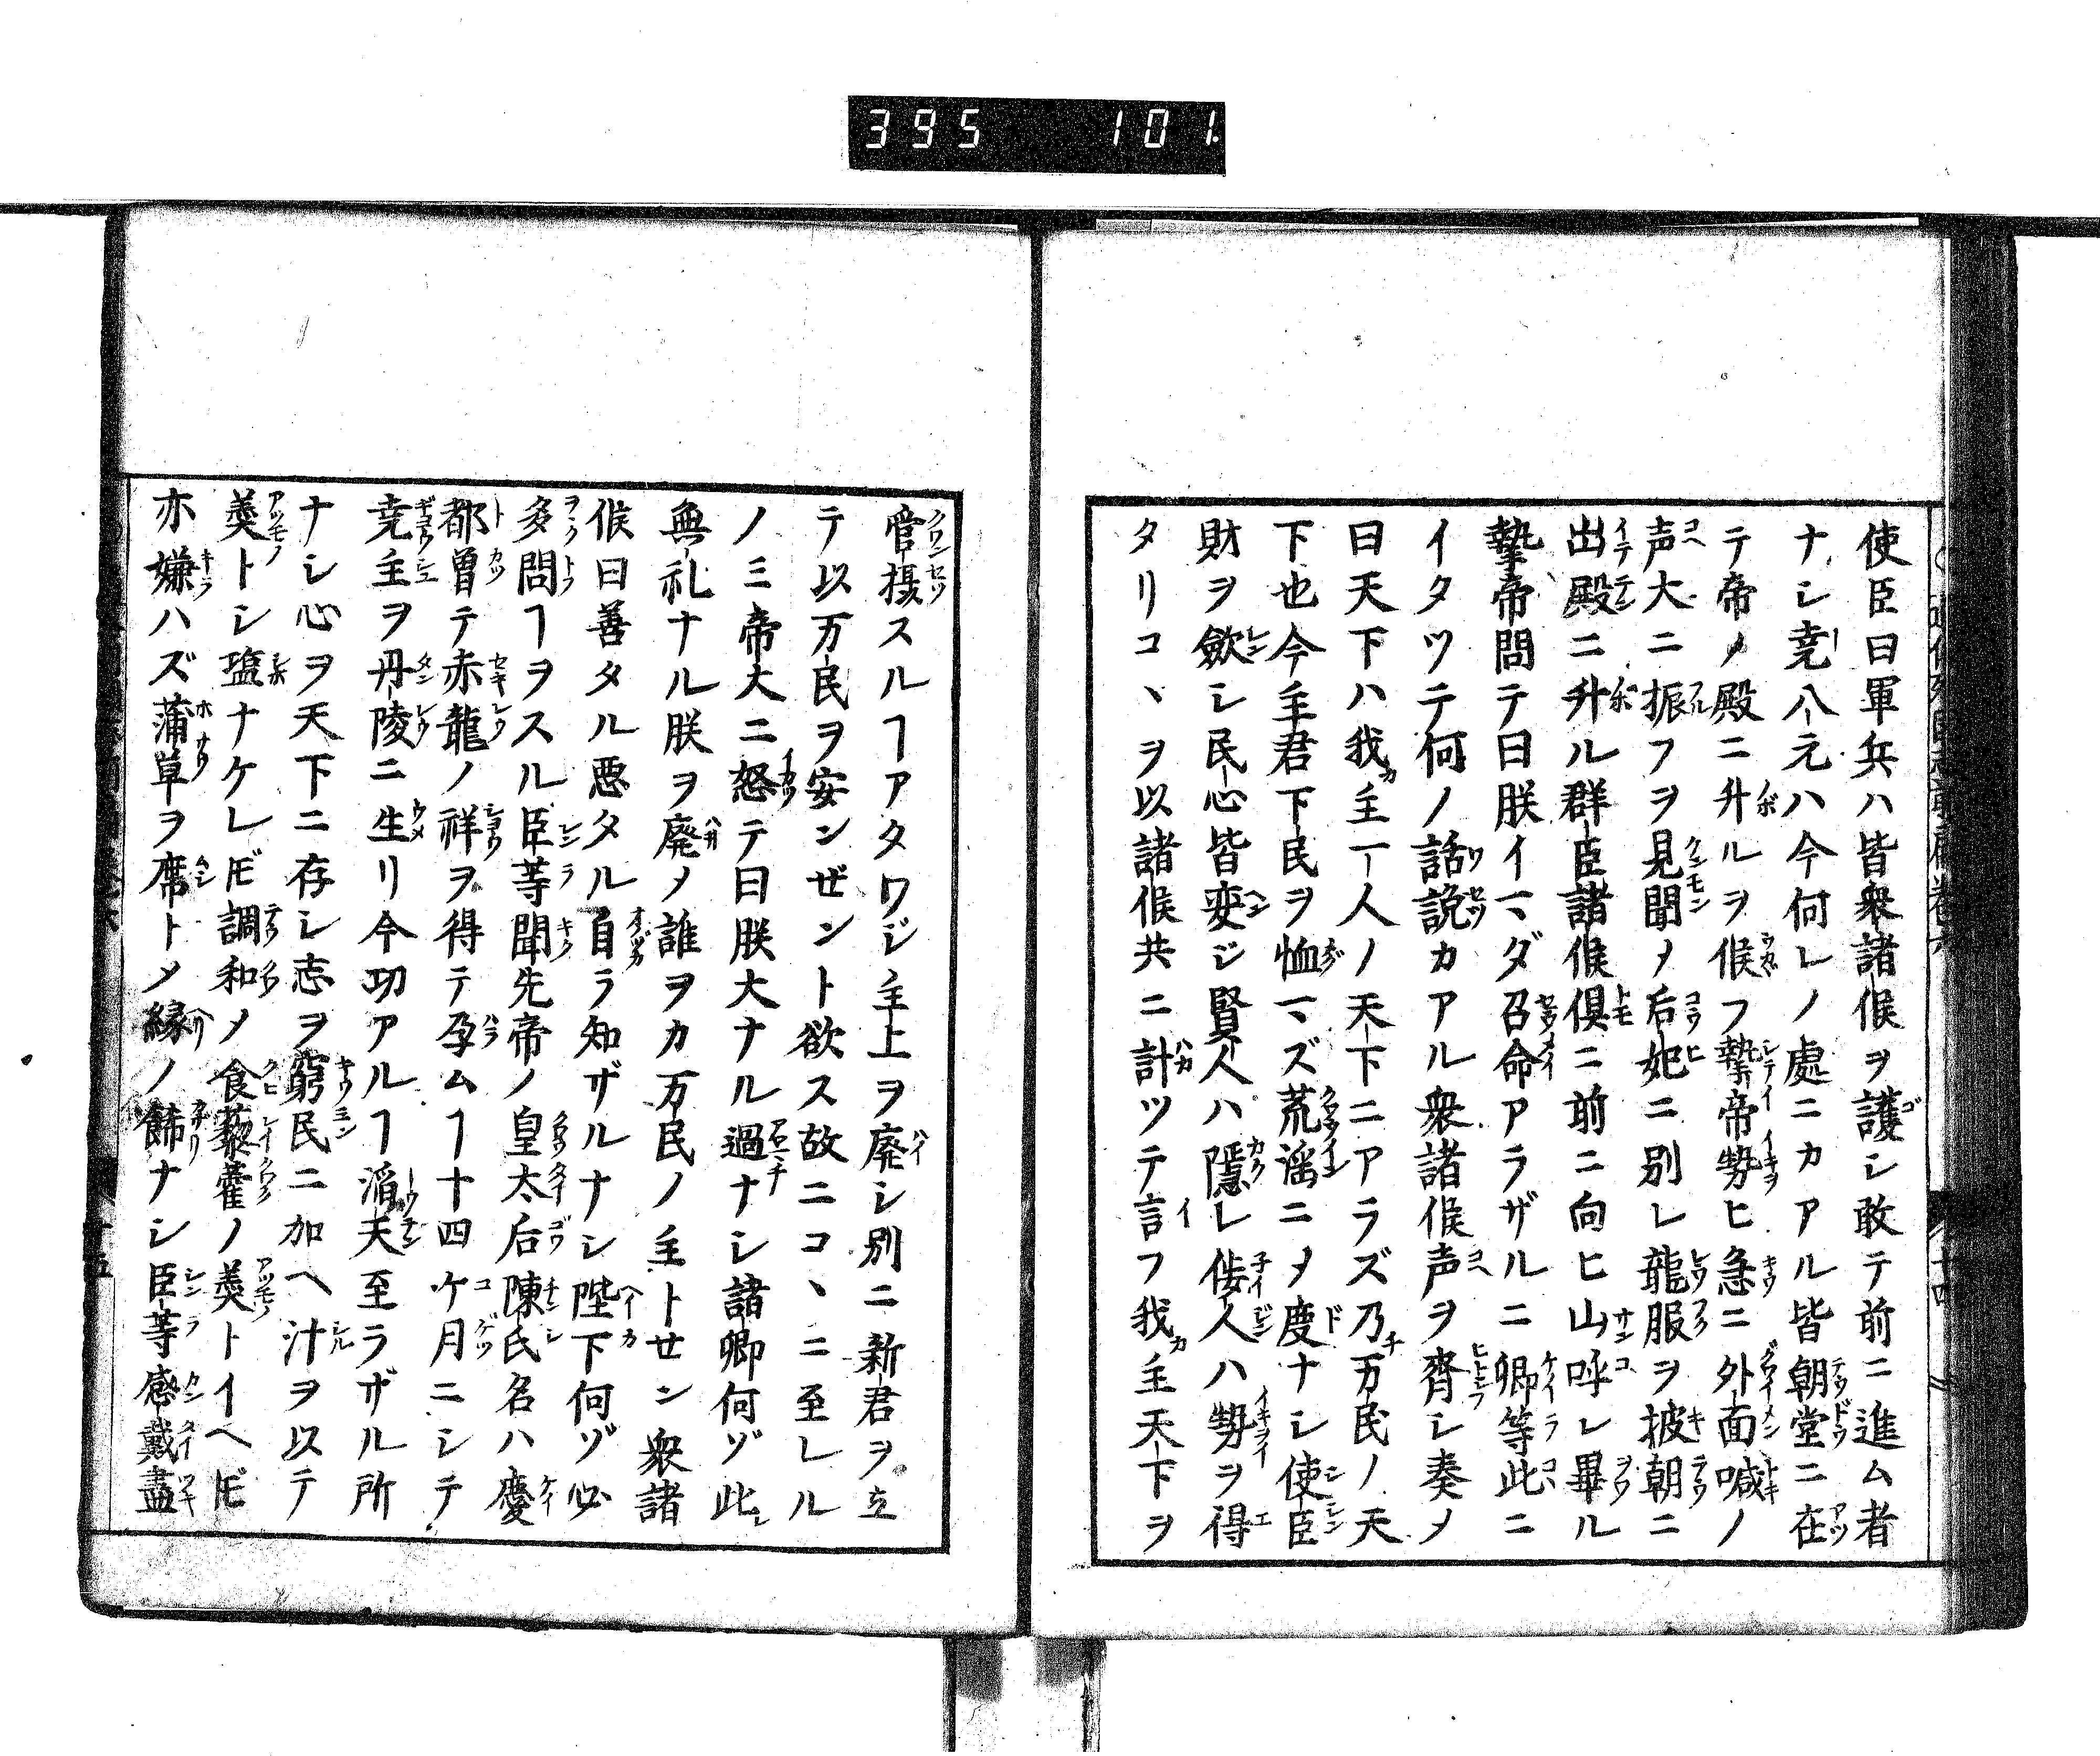 395 101
使臣曰軍兵ハ皆衆諸候ヲ護シ敢テ前ニ進ム者
ナシ尭八元ハ今何レノ處ニカアル皆朝堂ニ在
テ帝ノ殿ニ升ルヲ候フ摯帝勢ヒ急ニ外面喊ノ
声大ニ振フヲ見聞ノ后妃ニ別レ龍服ヲ披朝ニ
出殿ニ升ル群臣諸候倶ニ前ニ向ヒ山呼シ畢ル
摯帝問テ曰朕イマダ召命アラザルニ卿等此ニ
イタツテ何ノ話説カアル衆諸候声ヲ齊シ奏メ
曰天下ハ我主一人ノ天下ニアラズ乃万民ノ天
下也今主君下民ヲ恤マズ荒滛ニメ度ナシ使臣
財ヲ歛シ民心皆変ジ賢人ハ隱レ侫人ハ勢ヲ得
タリコヽヲ以諸候共ニ計ツテ言フ我主天下ヲ
管摂スルヿアタワジ主上ヲ廃シ別ニ新君ヲ立
テ以万民ヲ安ンぜント欲ス故ニコヽニ至レル
ノミ帝大ニ怒テ曰朕大ナル過ナシ諸卿何ゾ此
無礼ナル朕ヲ廃メ誰ヲカ万民ノ主トセン衆諸
候曰善タル悪タル自ラ知ザルナシ陛下何ゾ必
多問ヿヲスル臣等聞先帝ノ皇太后陳氏名ハ慶
都曽テ赤龍ノ祥ヲ得テ孕ムヿ十四ケ月ニシテ
尭主ヲ丹陵ニ生リ今功アルヿ滔天至ラザル所
ナシ心ヲ天下ニ存シ志ヲ窮民ニ加ヘ汁ヲ以テ
羮トシ塩ナケレ𪜈調和メ食藜藿ノ羮トイヘ𪜈
亦嫌ハズ蒲草ヲ席トメ縁ノ餙ナシ臣等感戴盡